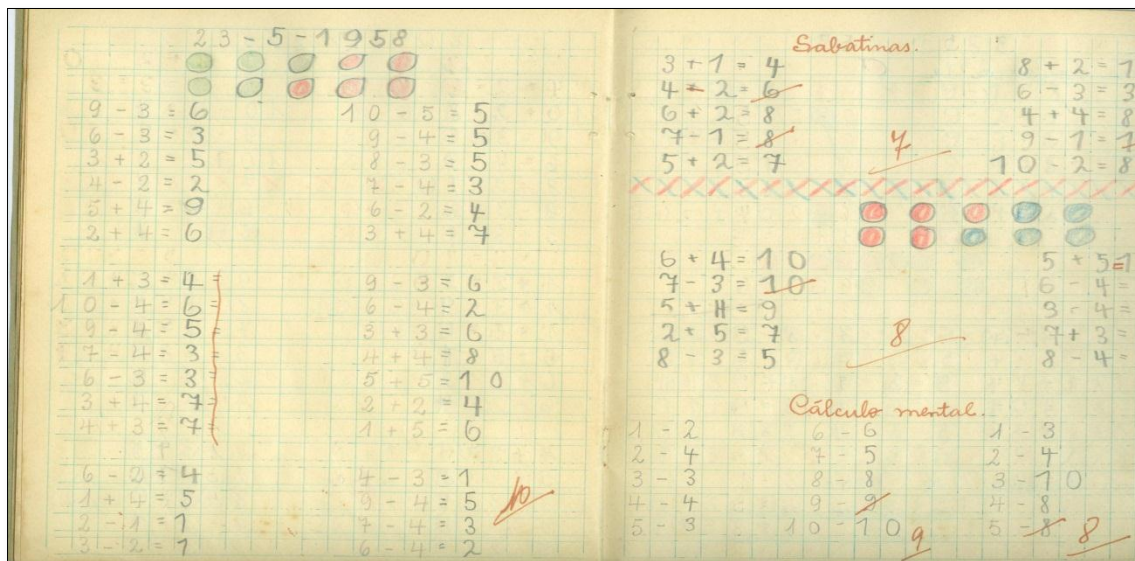 23-5-1958
9 - 3 = 6
6 - 3 = 3
3 + 2 = 5
4 - 2 = 2
5 + 4 = 9
2 + 4 = 6
10 - 5 = 5
9 - 4 = 5
8 - 3 = 5
7 - 4 = 3
6 - 2 = 4
3 + 4 = 7
1 + 3 = 4 =
10 - 4 = 6 =
9 - 4 = 5 =
7 - 4 = 3 =
6 - 3 = 3 =
3 + 4 = 7 =
4 + 3 = 7 =
9 - 3 = 6
6 - 4 = 2
3 + 3 = 6
4 + 4 = 8
5 + 5 = 10
2 + 2 = 4
1 + 5 = 6
6 - 2 = 4
1 + 4 = 5
2 - 1 = 1
3 - 2 = 1
4 - 3 = 1
9 - 4 = 5
7 - 4 = 3
6 - 4 = 2
10
Sabatinas.
3 + 1 = 4
4 - 2 = 6
6 + 2 = 8
7 - 1 = 8
5 + 2 = 7
7
8 + 2 = 1
6 - 3 = 3
4 + 4 = 8
9 - 1 = 1
10 - 2 = 8
6 + 4 = 10
7 - 3 = 10
5 + 4 = 9
2 + 5 = 7
8 - 3 = 5
8
5 + 5 = 1
6 - 4 =
3 - 4 =
7 + 3 =
8 - 4 =
Cálculo mental.
1 - 2
2 - 4
3 - 3
4 - 4
5 - 3
6 - 6
7 - 5
8 - 8
9 - 9
10 - 10
9
1 - 3
2 - 4
3 - 10
4 - 8
5 - 8
8